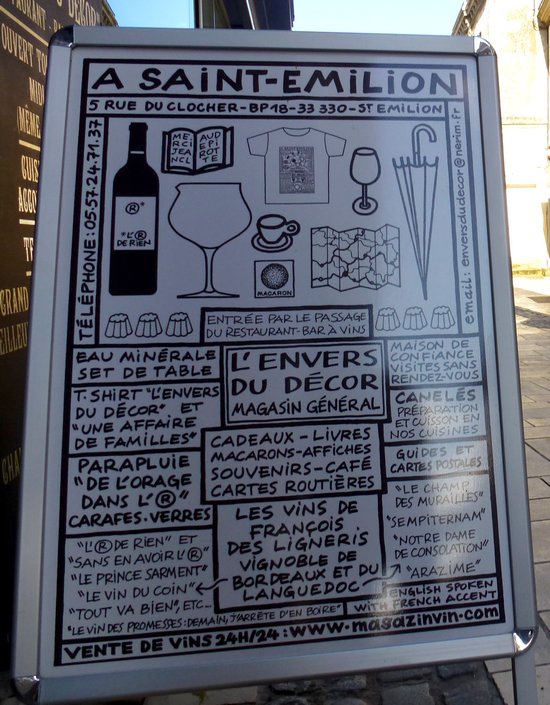 A SAiNT-EMiLiON
5 RUE DU CLOCHER-BP18-33 330-ST EMILION
TÉLÉPHONE: 05.57.24.71.37
email: enversdudecor@nerim.fr
MERCI JEAN CL AUDE PIROTTE
®
"L'® DE RIEN
MACARON
ENTRÉE PAR LE PASSAGE
DU RESTAURANT-BAR À VINS
EAU MINÉRALE
SET DE TABLE
T.SHIRT "L'ENVERS
DU DÉCOR" ET
"UNE AFFAIRE
DE FAMILLES"
PARAPLUIE
"DE L'ORAGE
DANS L'®"
CARAFES.VERRES
"L'® DE RIEN" ET
"SANS EN AVOIR L'®"
"LE PRINCE SARMENT"
"LE VIN DU COIN"
"TOUT VA BIEN", ETC...
"LE VIN DES PROMESSES: DEMAIN, J'ARRÊTE D'EN BOIRE"
L'ENVERS
DU DÉCOR
MAGASIN GÉNÉRAL
CADEAUX-LIVRES
MACARONS-AFFICHES
SOUVENIRS-CAFÉ
CARTES ROUTIÈRES
LES VINS DE
FRANÇOIS
DES LIGNERIS
VIGNOBLE DE
BORDEAUX ET DU
LANGUEDOC
MAISON DE
CONFIANCE
VISITES SANS
RENDEZ-VOUS
CANELÉS
PRÉPARATION
ET CUISSON EN
NOS CUISINES
GUIDES ET
CARTES POSTALES
"LE CHAMP
DES MURAILLES"
"SEMPITERNAM"
"NOTRE DAME
DE CONSOLATION"
"ARAZIME"
ENGLISH SPOKEN
WITH FRENCH ACCENT
VENTE DE VINS 24H/24: www.magazinvin.com